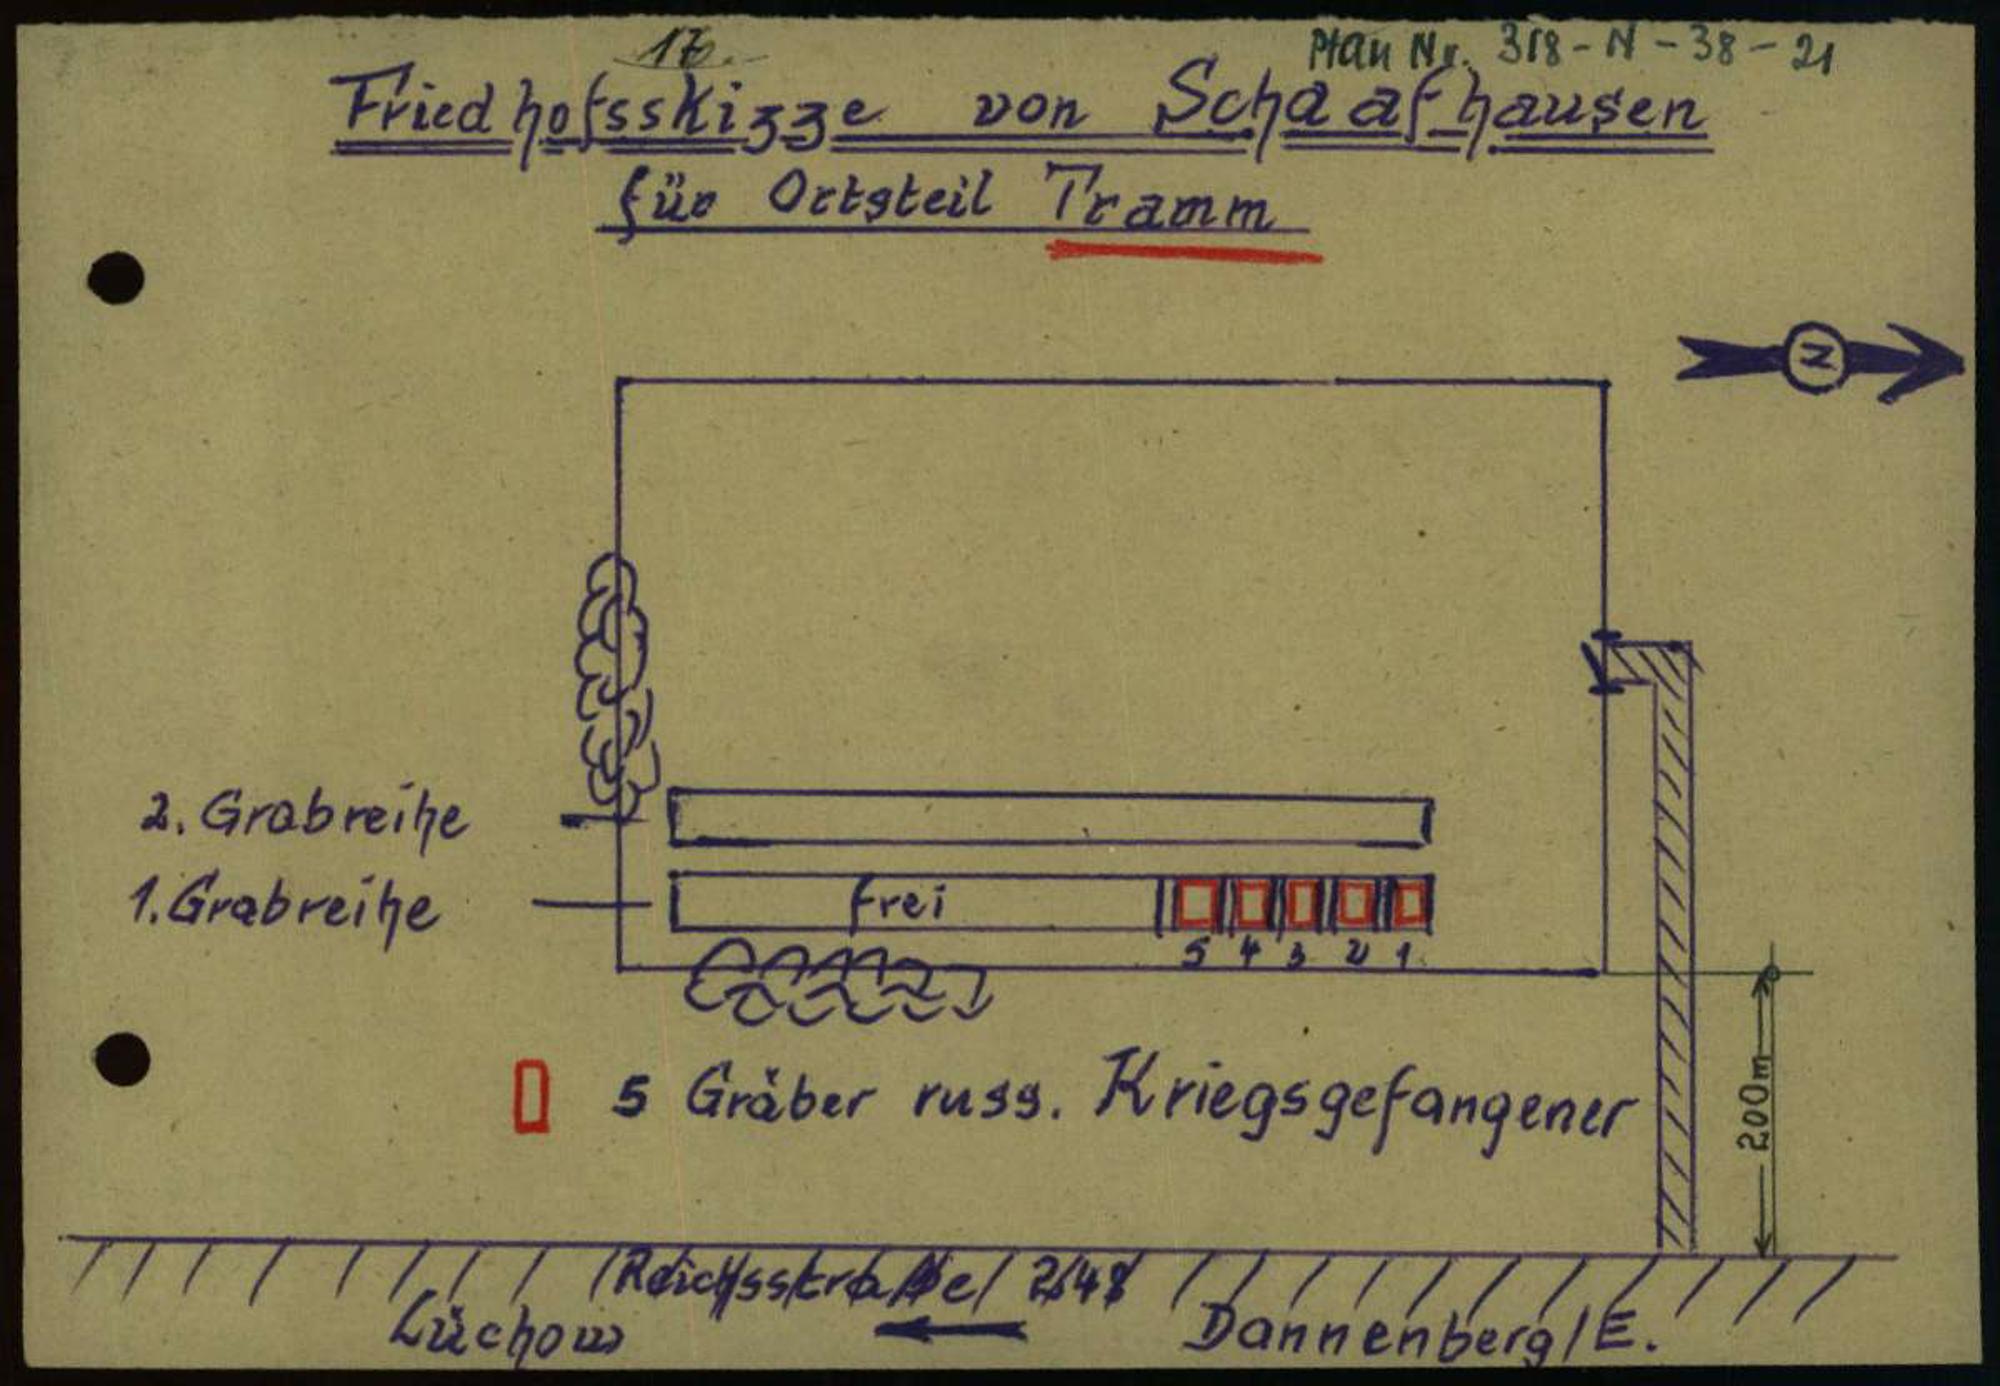 17.
Plan Nr. 318-N-38-21
Friedhofsskizze von Schaafhausen
für Ortsteil Tramm
N
2. Grabreihe
1. Grabreihe
frei
5 4 3 2 1
5 Gräber russ. Kriegsgefangener
200m
Reichsstraße 248
Lüchow
Dannenberg/E.